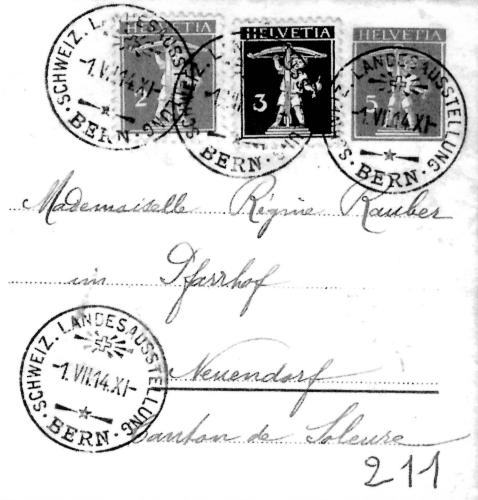 SCHWEIZ. LANDESAUSSTELLUNG
-1.VII.14.XI-
·BERN·
HELVETIA
2
SCHWEIZ. LANDESAUSSTELLUNG
BERN
HELVETIA
3
SCHWEIZ. LANDESAUSSTELLUNG
-1.VII.14.XI-
·BERN·
HELVETIA
5
Mademoiselle Régine Rauber
im Pfarrhof
SCHWEIZ. LANDESAUSSTELLUNG
-1.VII.14.XI-
·BERN·
Neuendorf
Canton de Soleure
211